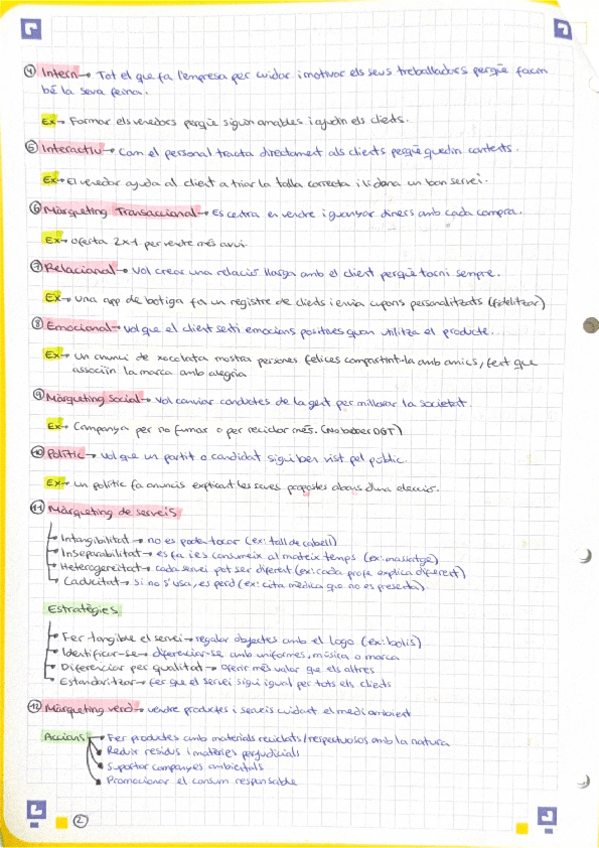 ④ Intern → Tot el que fa l'empresa per cuidar i motivar els seus treballadors perquè facin
bé la seva feina.
Ex → Formar els venedors perquè siguin amables i ajudin els clients.
⑤ Interactiu → Com el personal tracta directament als clients perquè quedin contents.
Ex → El venedor ajuda al client a triar la talla correcta i li dona un bon servei.
⑥ Màrqueting Transaccional → Es centra en vendre i guanyar diners amb cada compra.
Ex → Oferta 2x1 per vendre més avui.
⑦ Relacional → Vol crear una relació llarga amb el client perquè torni sempre.
Ex → Una app de botiga fa un registre de clients i envia cupons personalitzats (fidelitzar)
⑧ Emocional → Vol que el client senti emocions positives quan utilitza el producte.
Ex → Un anunci de xocolata mostra persones felices compartint-la amb amics, fent que
associïn la marca amb alegria
⑨ Màrqueting Social → Vol canviar conductes de la gent per millorar la societat.
Ex → Campanya per no fumar o per reciclar més. (No beber DGT)
⑩ Polític → Vol que un partit o candidat sigui ben vist pel públic.
Ex → Un polític fa anuncis explicant les seves propostes abans d'una elecció.
⑪ Màrqueting de serveis
Intangibilitat → no es poden tocar (ex: tall de cabell)
Inseparabilitat → es fa i es consumeix al mateix temps (ex: massatge)
Heterogeneitat → cada servei pot ser diferent (ex: cada profe explica diferent)
Caducitat → si no s'usa, es perd (ex: cita mèdica que no es presenta)
Estratègies
Fer tangible el servei → regalar objectes amb el logo (ex: bolis)
Identificar-se → diferenciar-se amb uniformes, música o marca
Diferenciar per qualitat → oferir més valor que els altres
Estandaritzar → fer que el servei sigui igual per tots els clients
⑫ Màrqueting verd → vendre productes i serveis cuidant el medi ambient
Accions → Fer productes amb materials reciclats/respectuosos amb la natura
Reduir residus i matèries perjudicials
Suportar campanyes ambientals
Promocionar el consum responsable
②